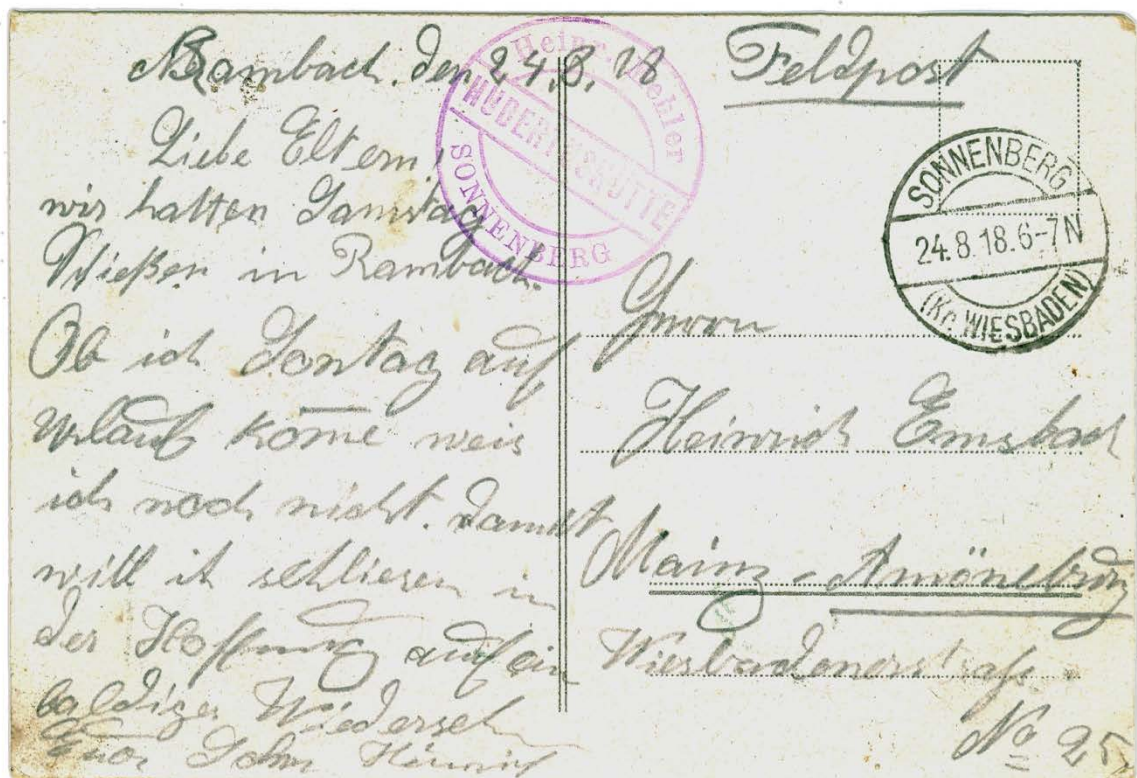 Rambach. den 24.8.18
Liebe Eltern,
wir hatten Samstag
Schießen in Rambach.
Ob ich Sontag auf
Urlaub kom̄e weis
ich noch nicht. Damit
will ich schliesen in
der Hoffnung auf ein
baldiges Wiedersehn
Euer Sohn Heinrich
Heinr. Kehler
HUBERTUSHÜTTE
SONNENBERG
Feldpost
SONNENBERG
24.8.18.6-7N
(Kr. WIESBADEN)
Herrn
Heinrich Emsbach
Mainz - Amöneburg
Wiesbadenerstraße
No 25